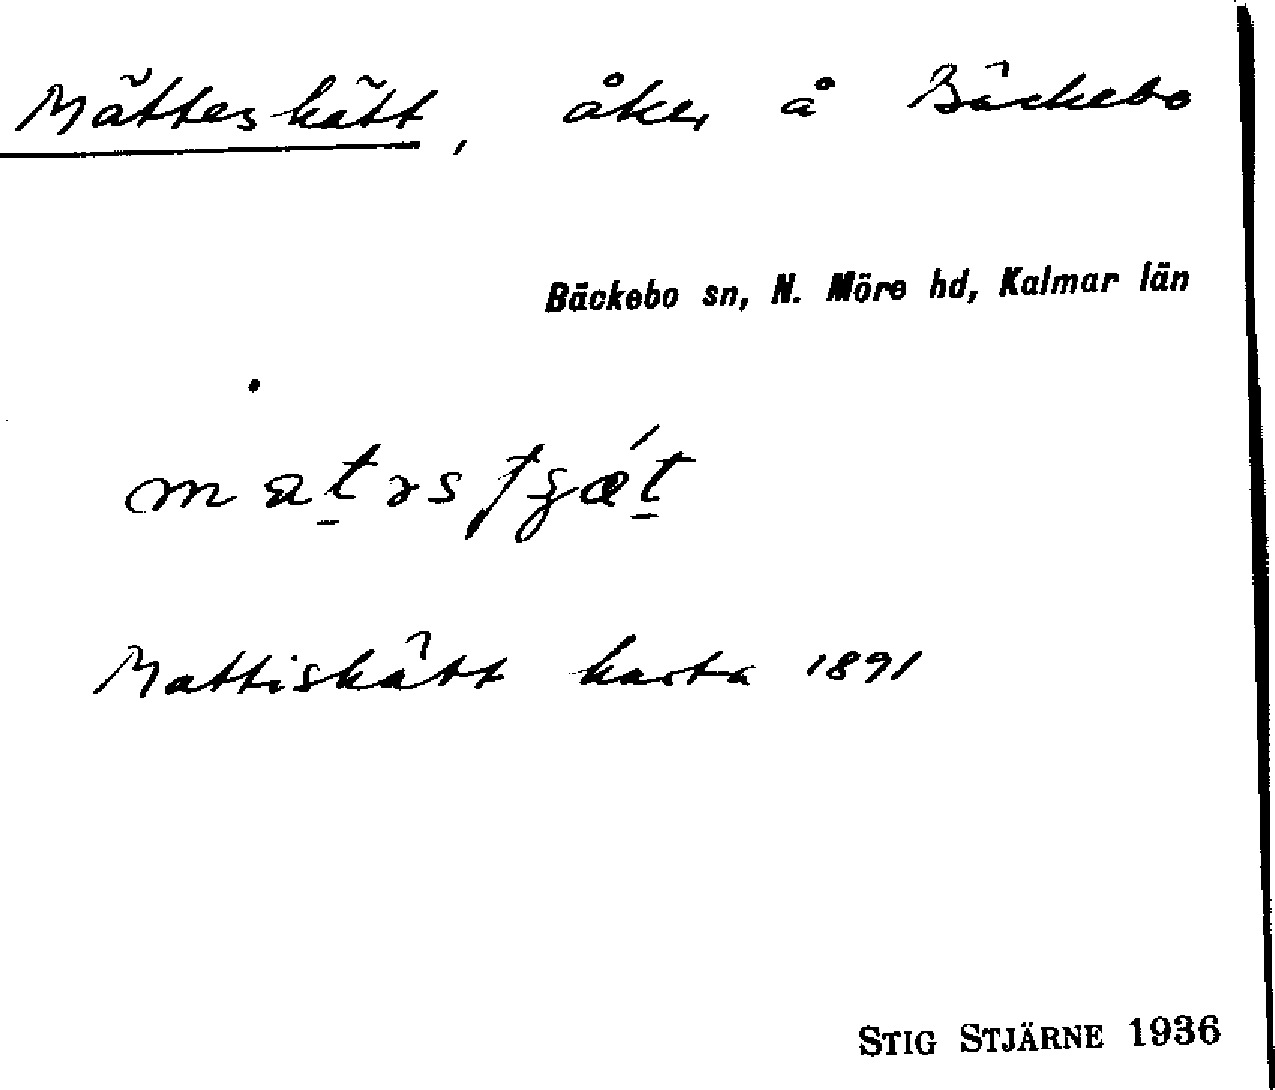 Mätteskätt, åker å Bäckebo
Bäckebo sn, N. Möre hd, Kalmar län
Mattiskätt karta 1891
STIG STJÄRNE 1936